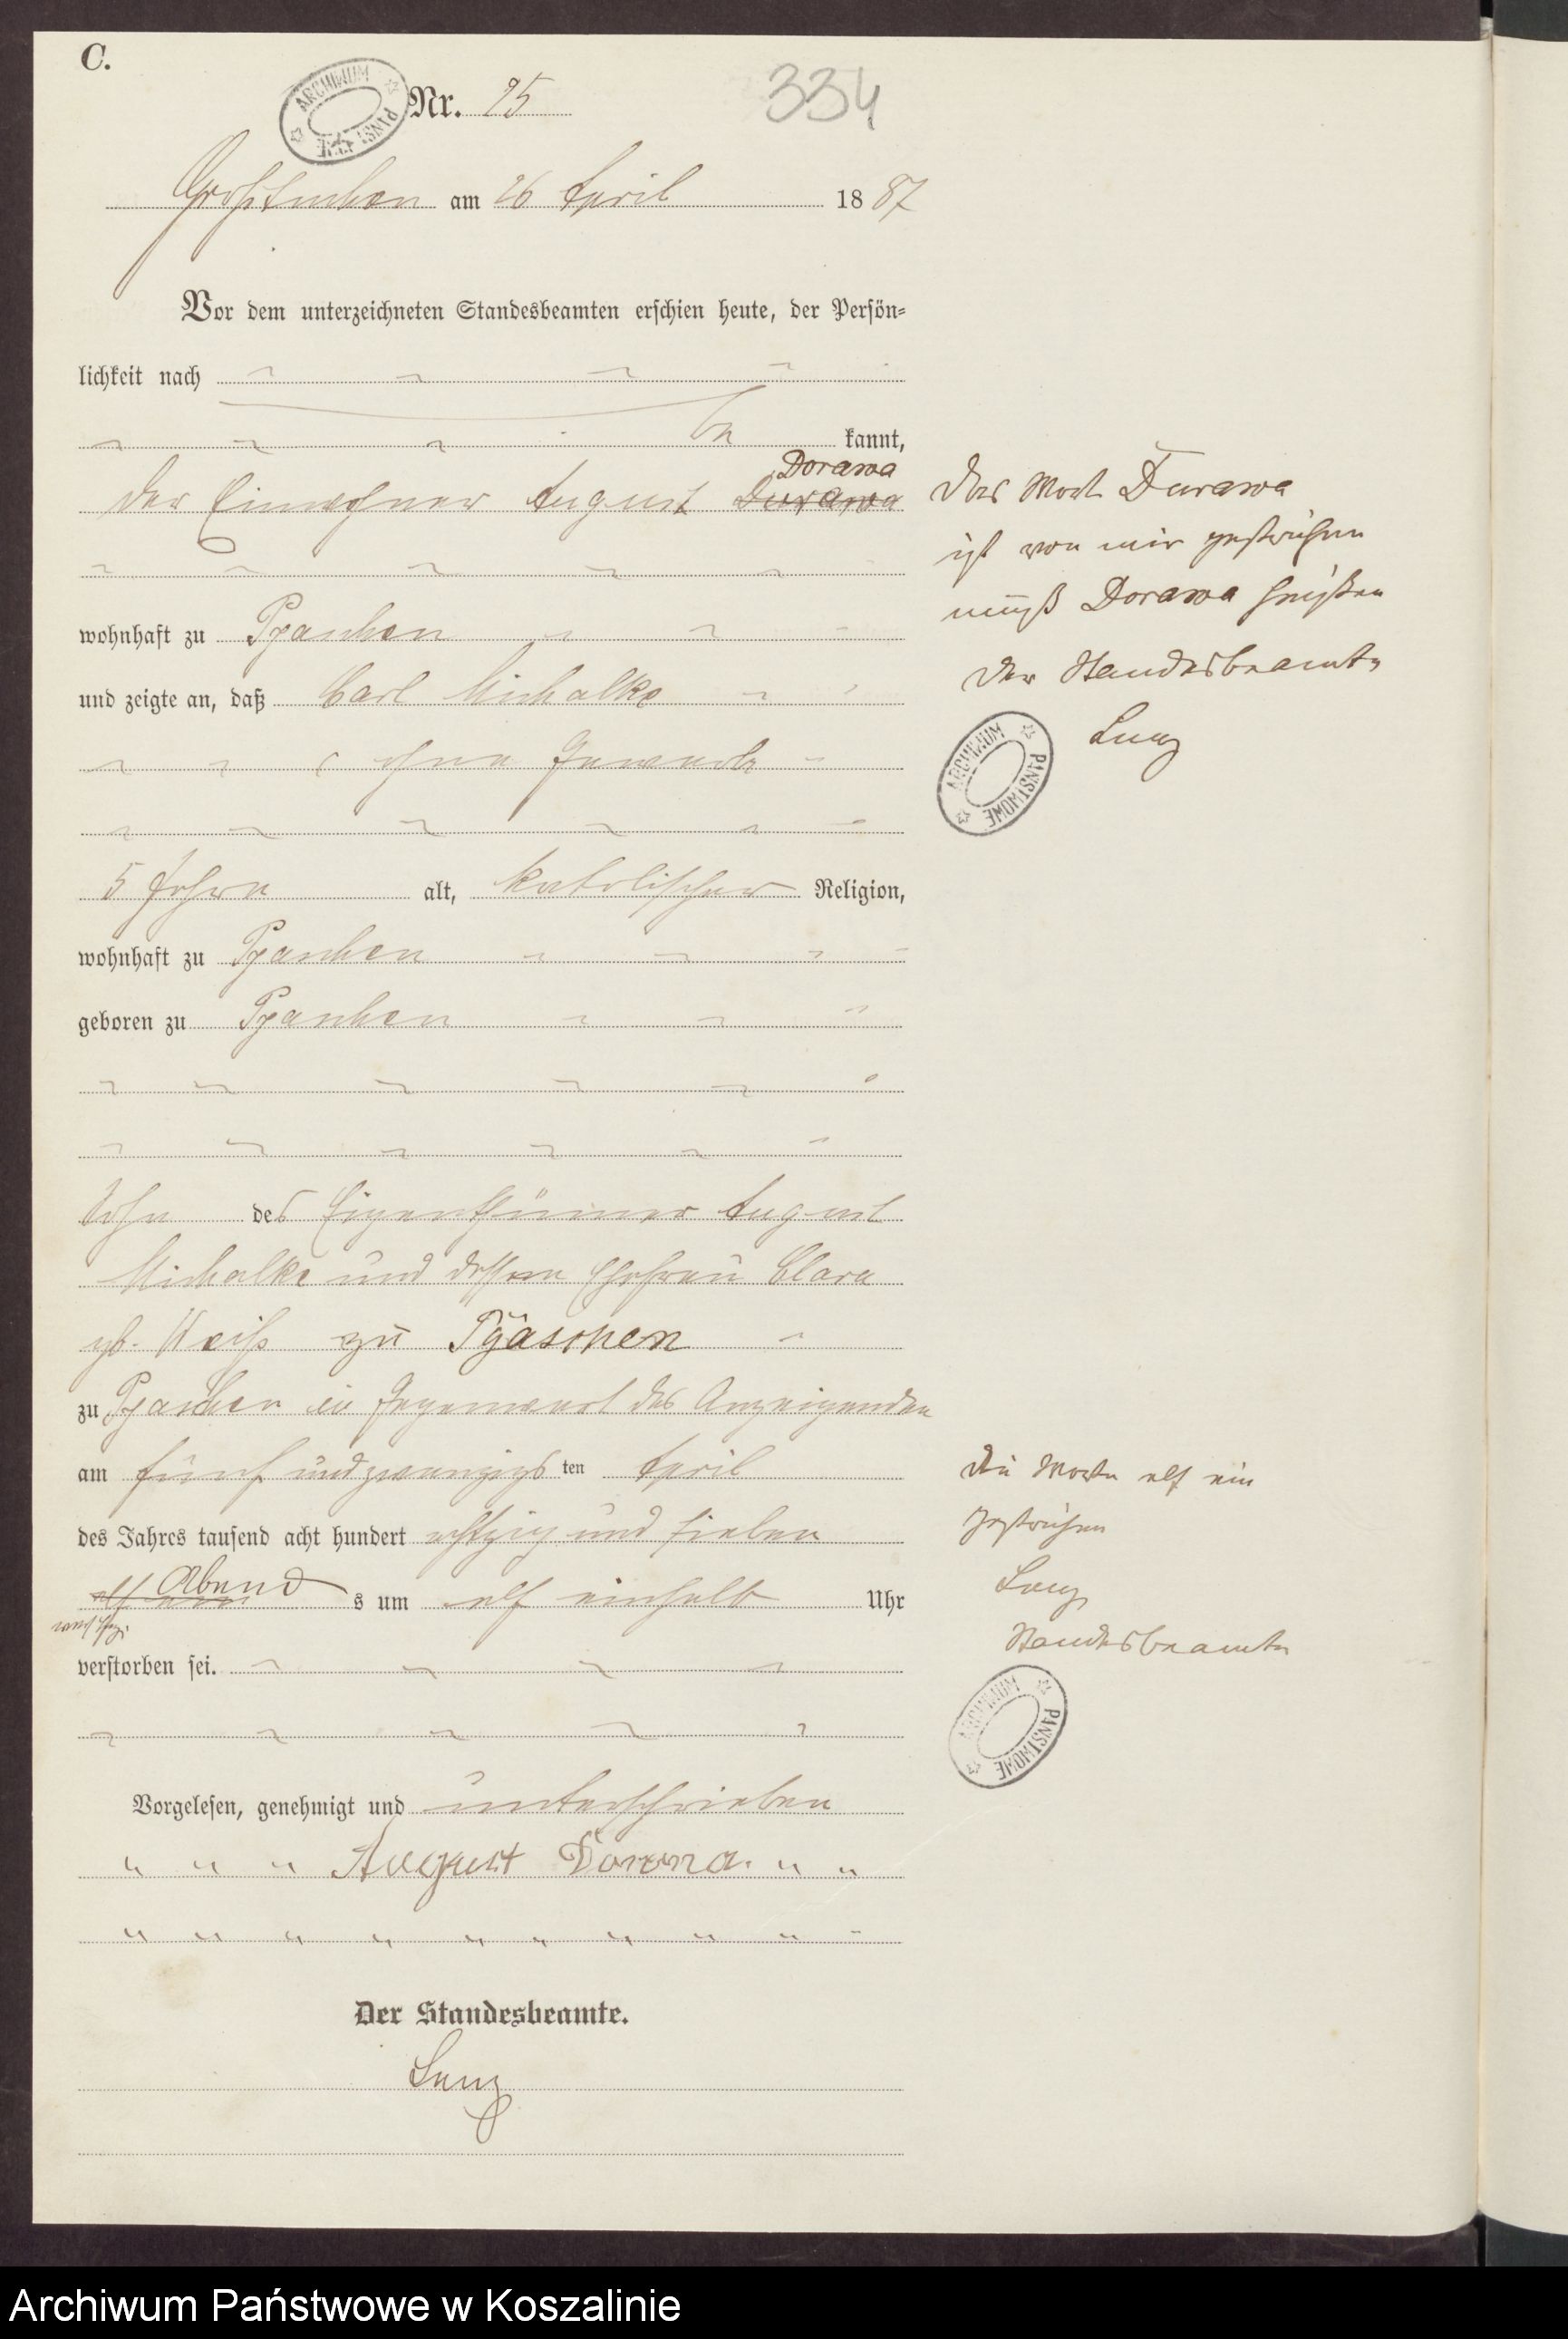 C.
ARCHIWUM PAŃSTWOWE
Nr. 25
334
Großtuchen am 26 April 1887
Vor dem unterzeichneten Standesbeamten erschien heute, der Persön-
lichkeit nach
be kannt,
Dorawa
der Einwohner August Durawa
wohnhaft zu Pyaschen
und zeigte an, daß Carl Michalke
ohne Gewerbe
5 Jahre alt, katolischer Religion,
wohnhaft zu Pyaschen
geboren zu Pyaschen
Sohn des Eigenthümer August
Michalke und dessen Ehefrau Clara
geb. Weiß zu Pyaschen
zu Pyaschen in Gegenwart des Anzeigenden
am fünf und zwanzigsten April
des Jahres tausend acht hundert achtzig und sieben
elf ein Abend s um elf einhalb Uhr
verstorben sei.
Vorgelesen, genehmigt und unterschrieben
" " " August Dorowa. " "
" " " " " " " " " "
Der Standesbeamte.
Lenz
Das Wort Durawa
ist von mir gestrichen
muß Dorawa heißen
Der Standesbeamte
Lenz
ARCHIWUM PAŃSTWOWE
Die Worte elf ein
gestrichen
Lenz
Standesbeamte
ARCHIWUM PAŃSTWOWE
Archiwum Państwowe w Koszalinie